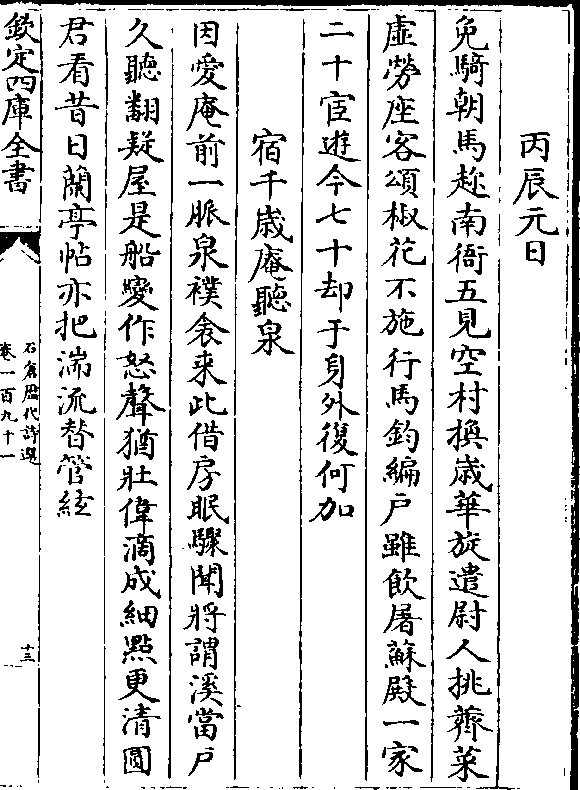 丙辰元日
免騎朝馬趂南衙五見空村換嵗華旋遣尉人挑薺菜
虛勞座客頌椒花不施行馬鈞編戸雖飲屠蘇殿一家
二十宦遊今七十却于身外復何加
宿千嵗庵聽泉
因愛庵前一脈泉襆衾来此借房眠驟聞將謂溪當戸
久聽翻疑屋是船變作怒聲猶壯偉滴成細㸃更清圓
君看昔日蘭亭帖亦把湍流替管絃
欽定四庫全書
石倉歴代詩選
卷一百九十一
十三